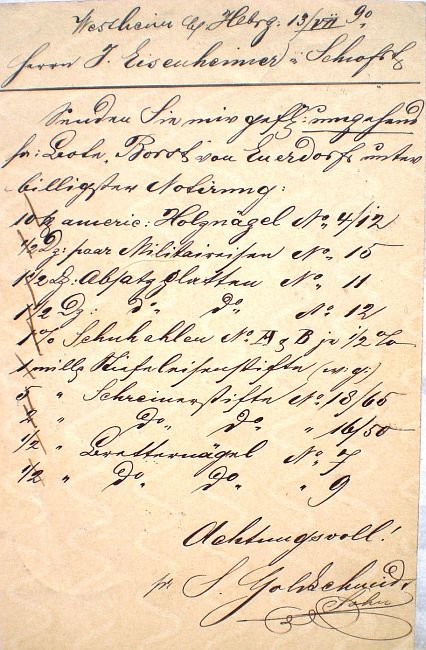 Westheim b/ Hbrg: 13/VII 90
Herrn J. Eisenheimer & Schofst
Senden Sie mir gefl: umgehend
pr: Bote, Borst von Euerdorf unter
billigster Notirung:
10 americ: Holznägel No. 4/12
1/2 Dz: paar Militaireisen No. 15
1 1/2 Dz: Absatzplatten No. 11
1 1/2 Dz: do do No. 12
1 % Schuhahlen No. A & B je 1/2 %
1 mille Stiefeleisenstifte (w: g:)
5 " Schreinerstifte No. 13/65
2 " do do " 16/50
1/2 " Bretternägel No. 7
1/2 " do do " 9
Achtungsvoll!
pr. S. Goldschmidt
Sohn